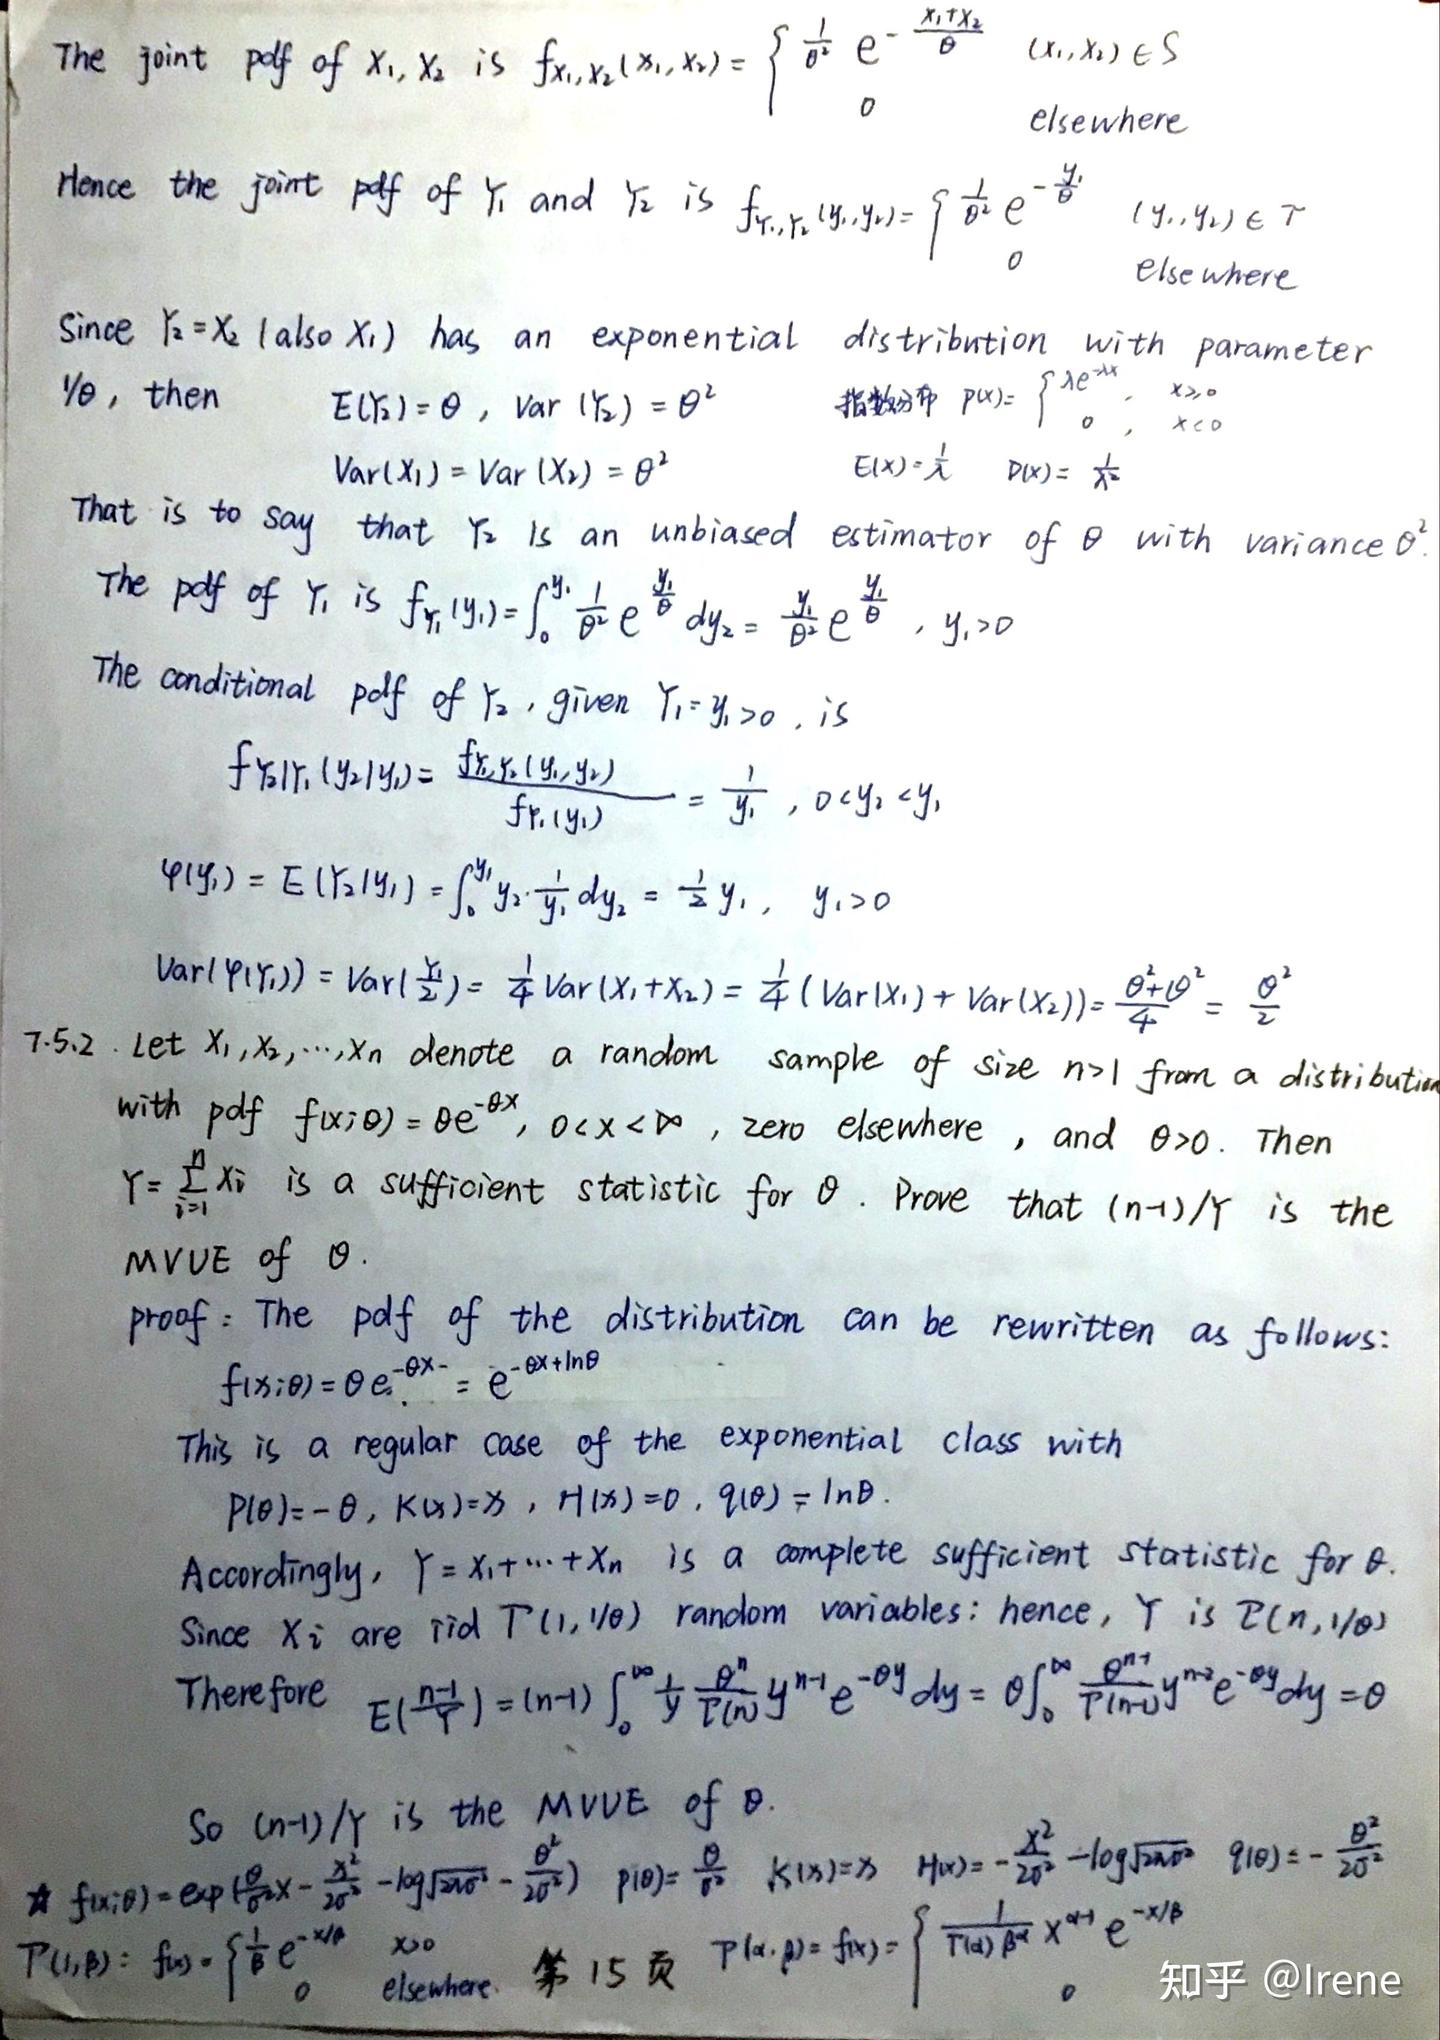 The joint pdf of X₁, X₂ is f_{X₁,X₂}(x₁, x₂) = { 1/θ² e^{-(x₁+x₂)/θ} (x₁, x₂) ∈ S
0 elsewhere
Hence the joint pdf of Y₁ and Y₂ is f_{Y₁,Y₂}(y₁, y₂) = { 1/θ² e^{-y₁/θ} (y₁, y₂) ∈ T
0 elsewhere
Since Y₂ = X₂ (also X₁) has an exponential distribution with parameter
1/θ, then E(Y₂) = θ, Var(Y₂) = θ² 指数分布 p(x) = { λe^{-λx}, x≥0
0, x<0
Var(X₁) = Var(X₂) = θ² E(x) = 1/λ D(x) = 1/λ²
That is to say that Y₂ is an unbiased estimator of θ with variance θ².
The pdf of Y₁ is f_{Y₁}(y₁) = ∫₀^{y₁} 1/θ² e^{y₁/θ} dy₂ = y₁/θ² e^{y₁/θ}, y₁>0
The conditional pdf of Y₂, given Y₁ = y₁>0, is
f_{Y₂|Y₁}(y₂|y₁) = f_{Y₁,Y₂}(y₁, y₂) / f_{Y₁}(y₁) = 1/y₁, 0<y₂<y₁
φ(y₁) = E(Y₂|y₁) = ∫₀^{y₁} y₂·1/y₁ dy₂ = 1/2 y₁, y₁>0
Var(φ(Y₁)) = Var(Y₁/2) = 1/4 Var(X₁+X₂) = 1/4 (Var(X₁) + Var(X₂)) = (θ²+θ²)/4 = θ²/2
7.5.2. Let X₁, X₂, ···, Xn denote a random sample of size n>1 from a distribution
with pdf f(x;θ) = θe^{-θx}, 0<x<∞, zero elsewhere, and θ>0. Then
Y = Σ_{i=1}^{n} Xi is a sufficient statistic for θ. Prove that (n-1)/Y is the
MVUE of θ.
proof: The pdf of the distribution can be rewritten as follows:
f(x;θ) = θe^{-θx} = e^{-θx+lnθ}
This is a regular case of the exponential class with
P(θ) = -θ, K(x) = x, H(x) = 0, q(θ) = lnθ.
Accordingly, Y = X₁+···+Xn is a complete sufficient statistic for θ.
Since Xi are iid Γ(1, 1/θ) random variables: hence, Y is Γ(n, 1/θ)
Therefore E((n-1)/Y) = (n-1) ∫₀^∞ 1/y θ^n/Γ(n) y^{n-1} e^{-θy} dy = θ∫₀^∞ θ^{n-1}/Γ(n-1) y^{n-2} e^{-θy} dy = θ
So (n-1)/Y is the MVUE of θ.
☆ f(x;θ) = exp(θ/σ² x - x²/2σ² - log√2πσ² - θ²/2σ²) p(θ) = θ/σ² K(x) = x H(x) = -x²/2σ² - log√2πσ² q(θ) = -θ²/2σ²
Γ(1,β): f(x) = { 1/β e^{-x/β} x>0 Γ(α,β) = f(x) = { 1/(Γ(α)β^α) x^{α-1} e^{-x/β}
0 elsewhere. 第15页 0
知乎 @Irene